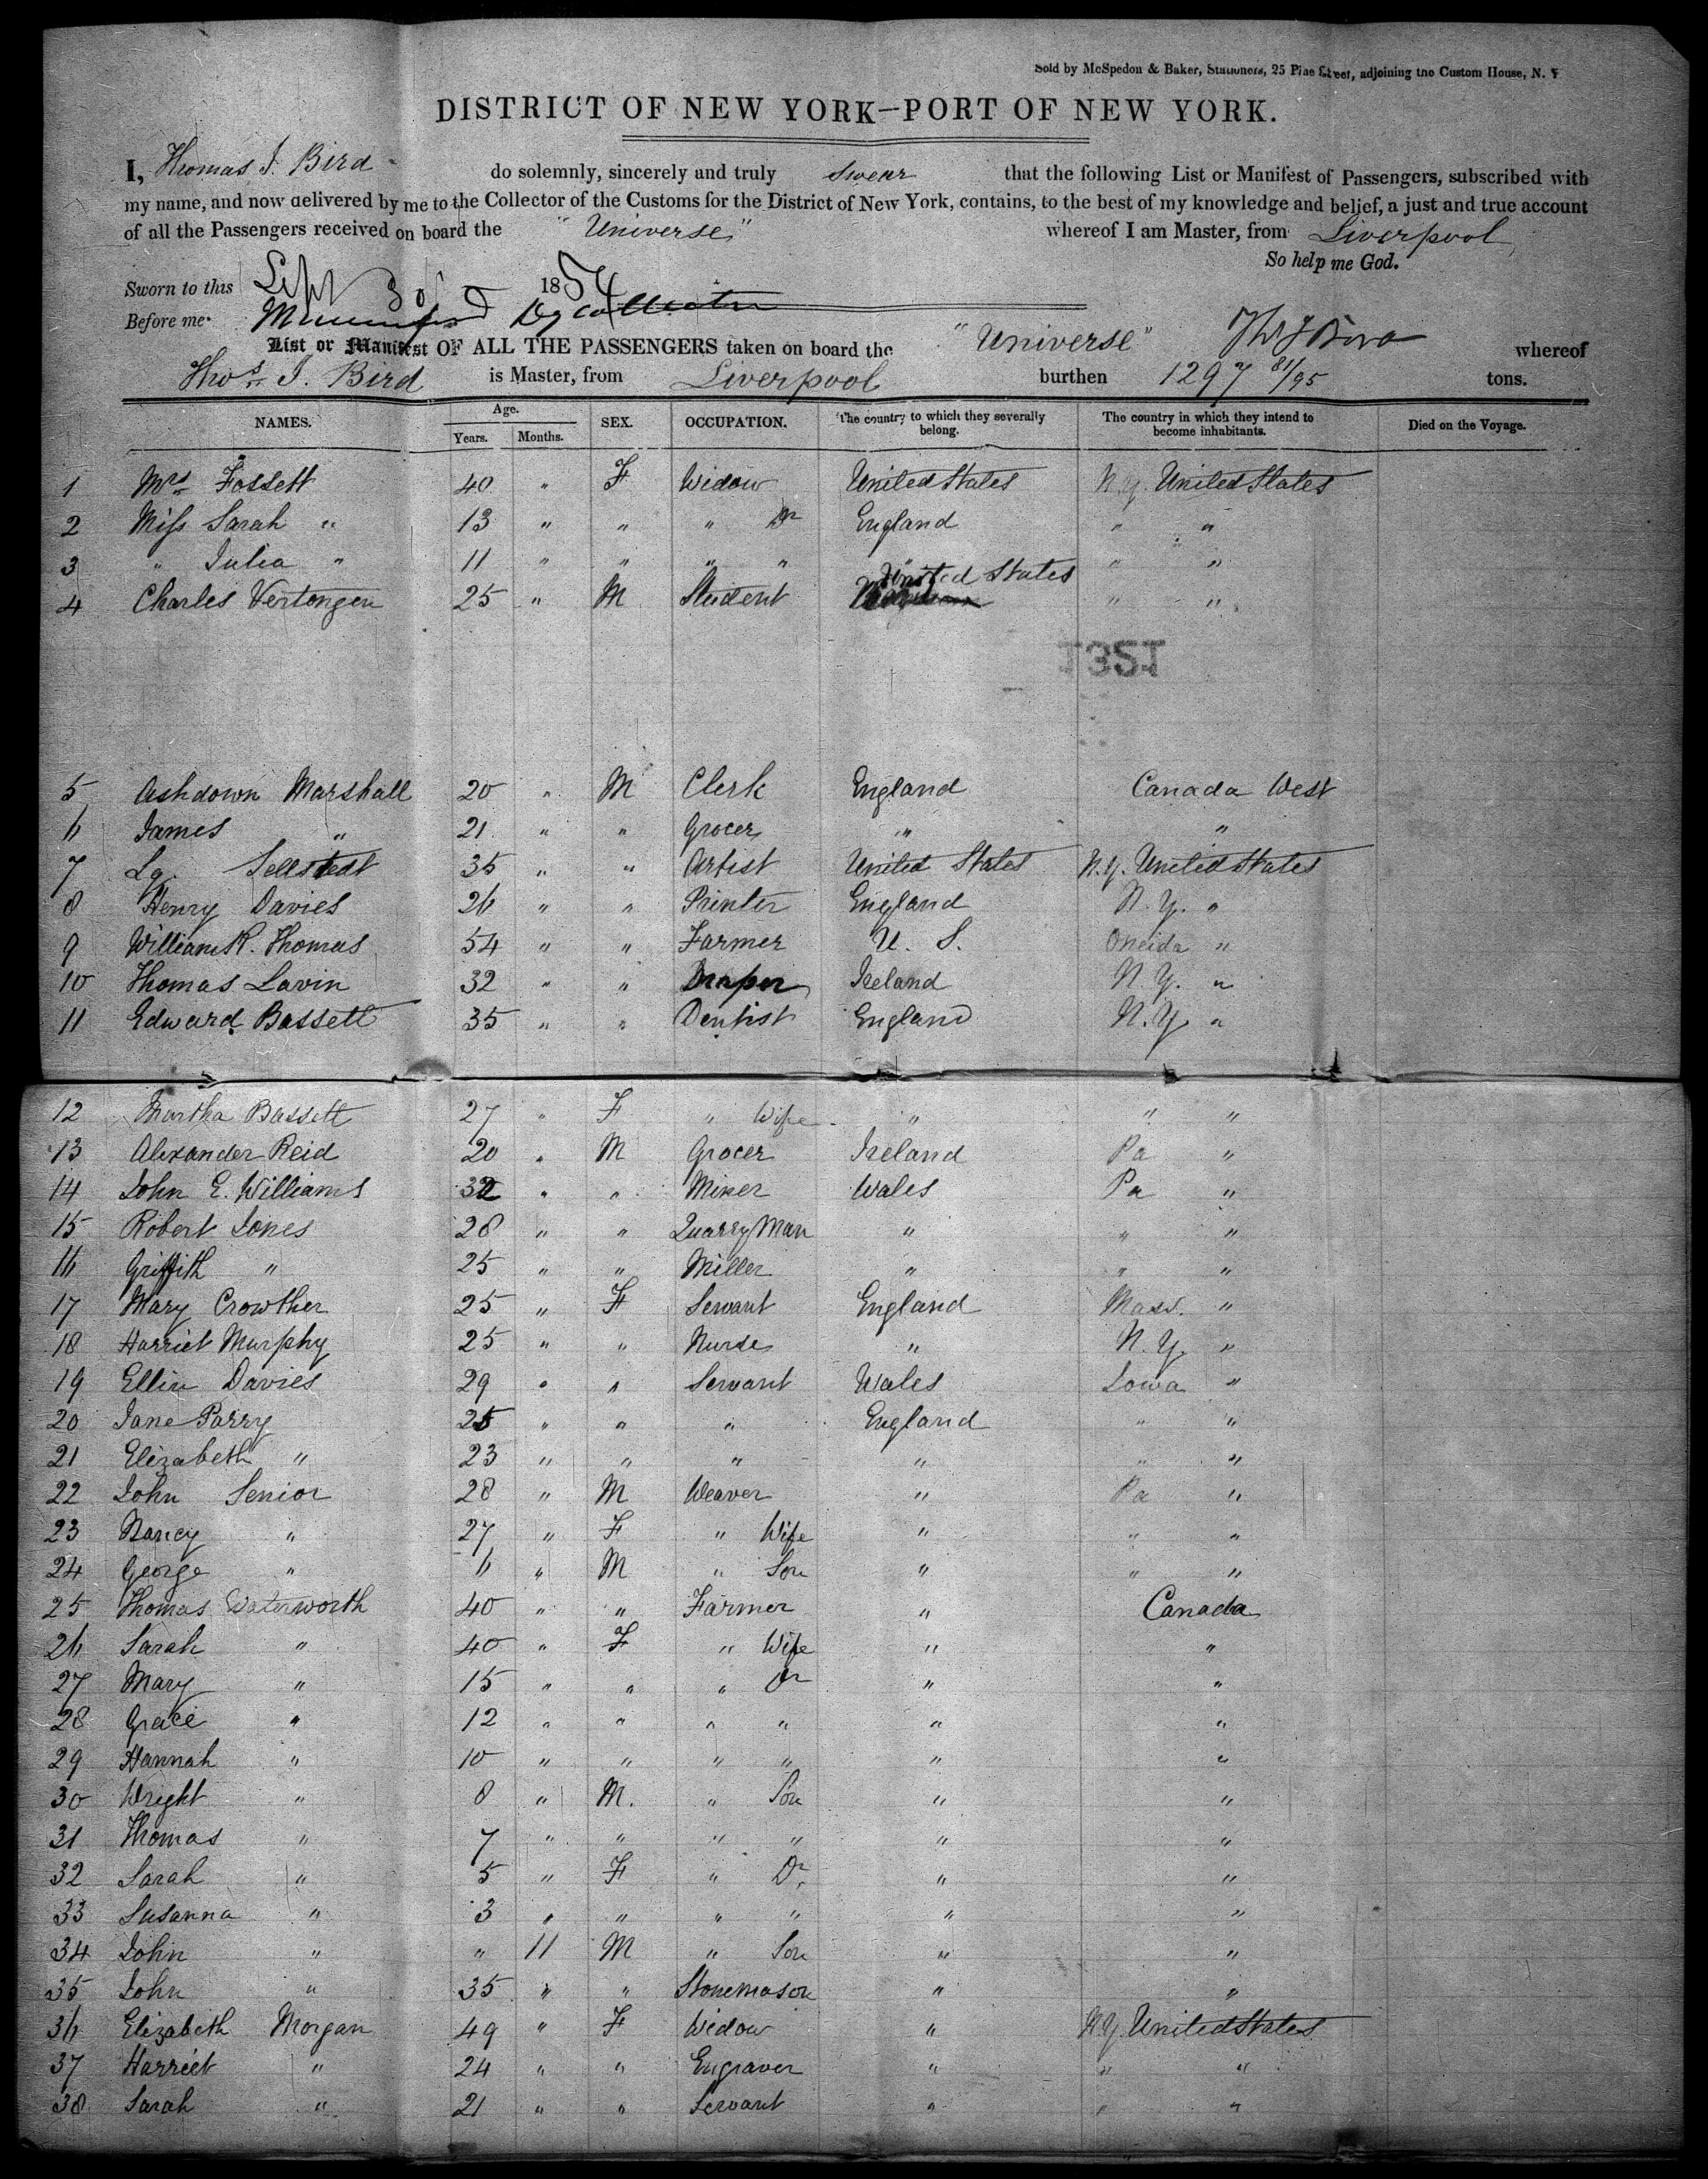 Sold by McSpedon & Baker, Stationers, 25 Pine Street, adjoining the Custom House, N. Y
DISTRICT OF NEW YORK—PORT OF NEW YORK.
I, Thomas J. Bird do solemnly, sincerely and truly swear that the following List or Manifest of Passengers, subscribed with
my name, and now delivered by me to the Collector of the Customs for the District of New York, contains, to the best of my knowledge and belief, a just and true account
of all the Passengers received on board the "Universe" whereof I am Master, from Liverpool
So help me God.
Sworn to this Sept 30 1854
Before me Dy Collector
Thos J Bird
List or Manifest OF ALL THE PASSENGERS taken on board the "Universe" whereof
Thos. J. Bird is Master, from Liverpool burthen 1297 81/95 tons.
NAMES. Age. Years. Months. SEX. OCCUPATION. The country to which they severally belong. The country in which they intend to become inhabitants. Died on the Voyage.
1 Mrs Fossett 40 " F Widow United States N.Y. United States
2 Miss Sarah " 13 " " " Dr England " "
3 " Julia " 11 " " " " " " "
4 Charles Vertongen 25 " M Student United States " "
T3ST
5 Ashdown Marshall 20 " M Clerk England Canada West
6 James " 21 " " Grocer " "
7 Lg. Sellstedt 35 " " Artist United States N.Y. United States
8 Henry Davies 26 " " Printer England N.Y. "
9 William R. Thomas 54 " " Farmer U. S. Oneida "
10 Thomas Lavin 32 " " Draper Ireland N.Y. "
11 Edward Bassett 35 " " Dentist England N.Y. "
12 Martha Bassett 27 " F " Wife " " "
13 Alexander Reid 20 " M Grocer Ireland Pa "
14 John E. Williams 32 " " Miner Wales Pa "
15 Robert Jones 28 " " Quarry Man " " "
16 Griffith " 25 " " Miller " " "
17 Mary Crowther 25 " F Servant England Mass. "
18 Harriet Murphy 25 " " Nurse " N.Y. "
19 Ellin Davies 29 " " Servant Wales Iowa "
20 Jane Parry 25 " " " England " "
21 Elizabeth " 23 " " " " " "
22 John Senior 28 " M Weaver " Pa "
23 Nancy " 27 " F " Wife " " "
24 George " 6 " M " Son " " "
25 Thomas Waterworth 40 " " Farmer " Canada
26 Sarah " 40 " F " Wife " "
27 Mary " 15 " " " Dr " "
28 Grace " 12 " " " " " "
29 Hannah " 10 " " " " " "
30 Wright " 8 " M. " Son " "
31 Thomas " 7 " " " " " "
32 Sarah " 5 " F " Dr " "
33 Susanna " 3 " " " " " "
34 John " " 11 M " Son " "
35 John " 35 " " Stonemason " "
36 Elizabeth Morgan 49 " F Widow " N.Y. United States
37 Harriet " 24 " " Engraver " " "
38 Sarah " 21 " " Servant " " "